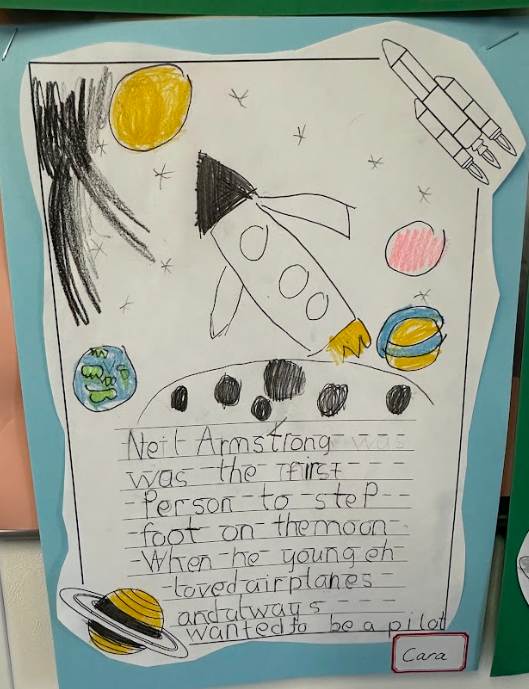 Neil Armstrong was
was the first
Person to step
foot on the moon
When he young eh
loved airplanes
and always
wanted to be a pilot
Cara